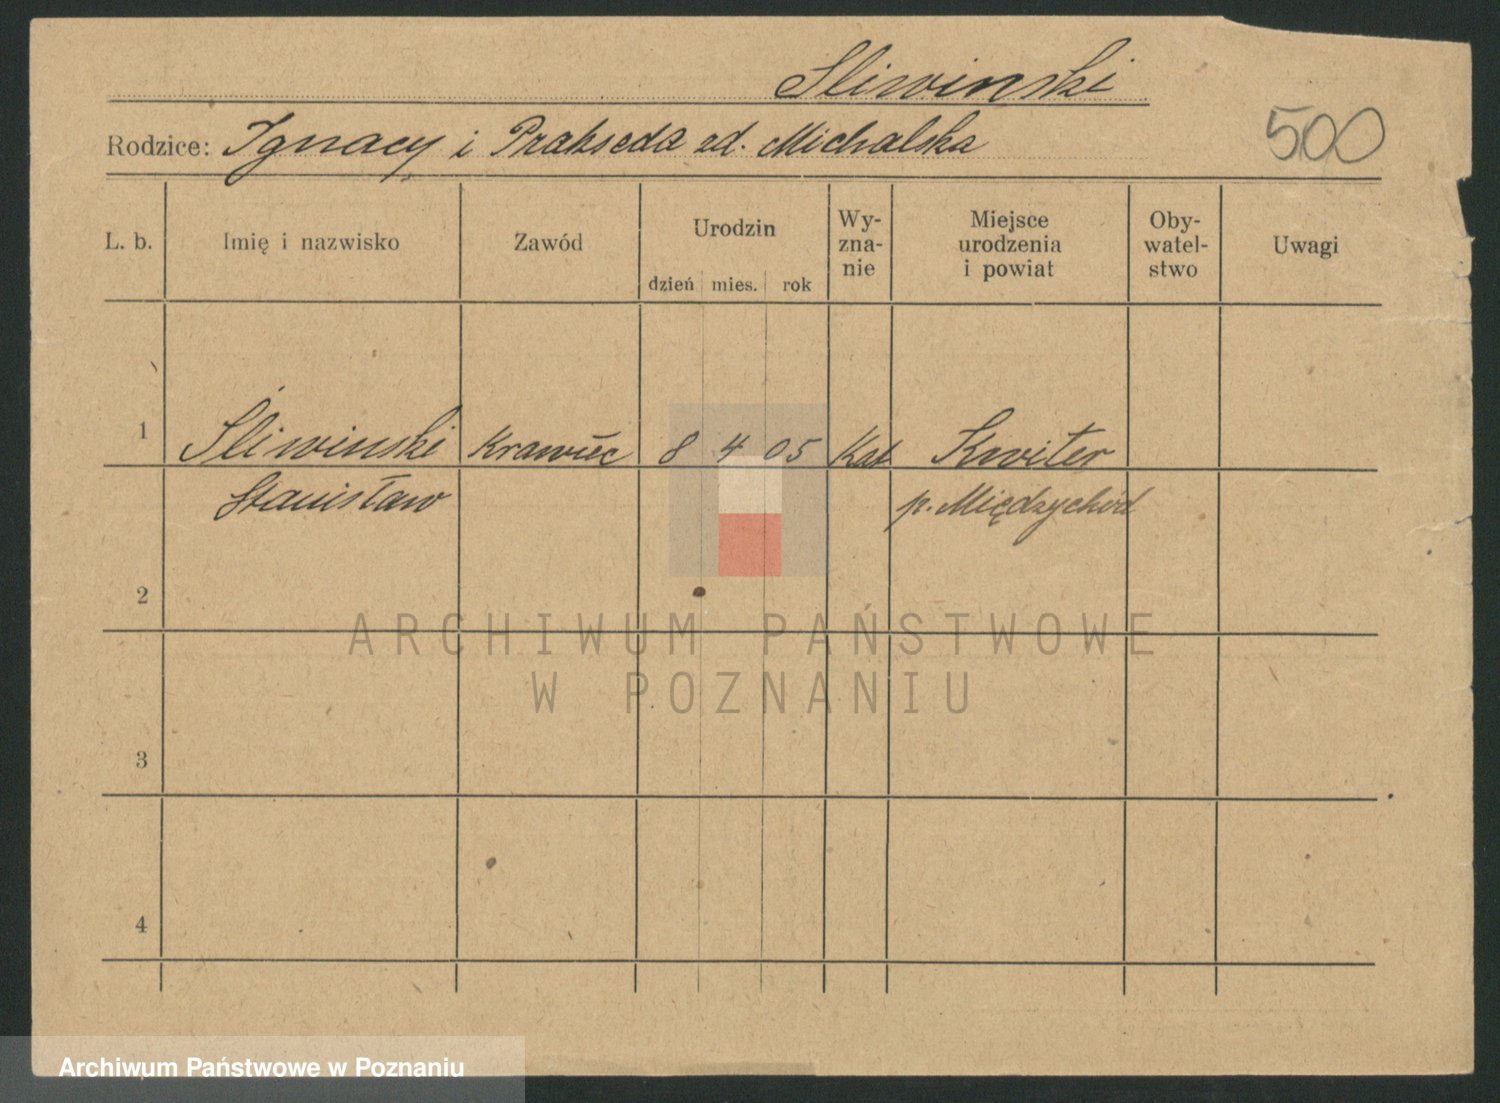 Sliwinski
Rodzice: Ignacy i Prakseda zd. Michalska
500
L. b. Imię i nazwisko Zawód Urodzin dzień mies. rok Wy-zna-nie Miejsce urodzenia i powiat Oby-watel-stwo Uwagi
1 Śliwinski Krawiec 8 4 05 Kat Kwilter
Stanisław p. Międzychód
2
ARCHIWUM PAŃSTWOWE
W POZNANIU
3
4
Archiwum Państwowe w Poznaniu